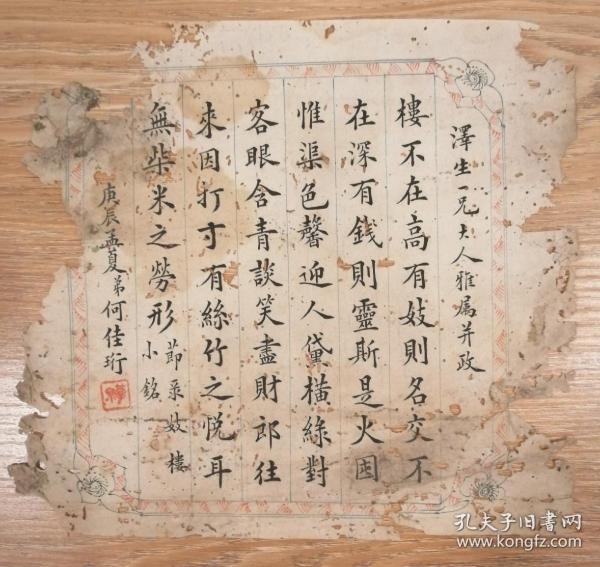 澤生一兄大人雅屬并政
樓不在高有妓則名交不
在深有錢則靈斯是火囤
惟渠色馨迎人黛橫綠對
客眼含青談笑盡財郎往
來因打寸有絲竹之悅耳
無柴米之勞形
節录妓樓
小銘
庚辰孟夏弟何佳珩
孔夫子旧書网
www.kongfz.com